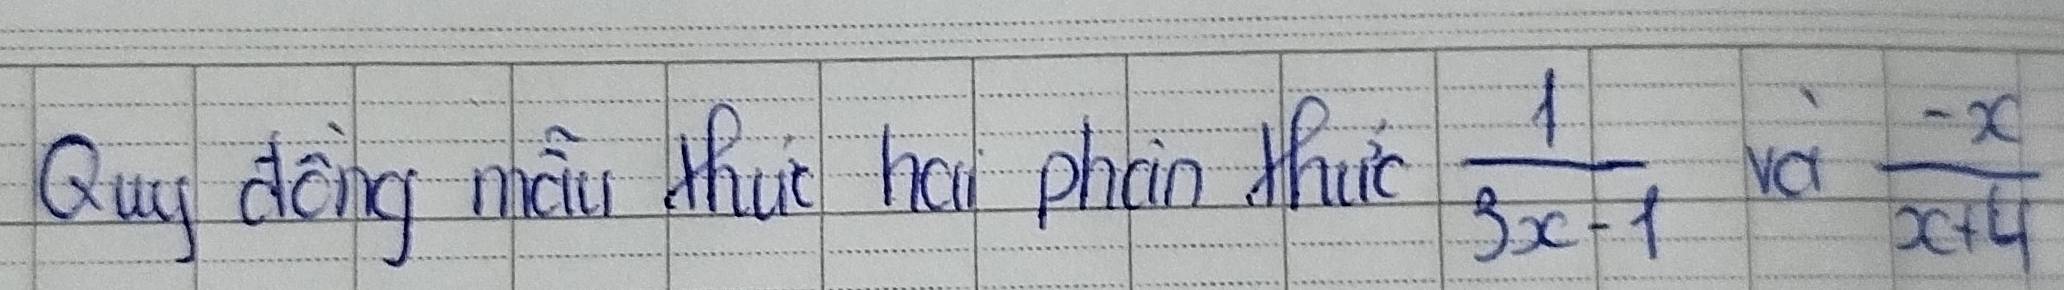 Quy đồng mẫu thức hai phân thức $\frac{1}{3x-1}$ và $\frac{-x}{x+4}$